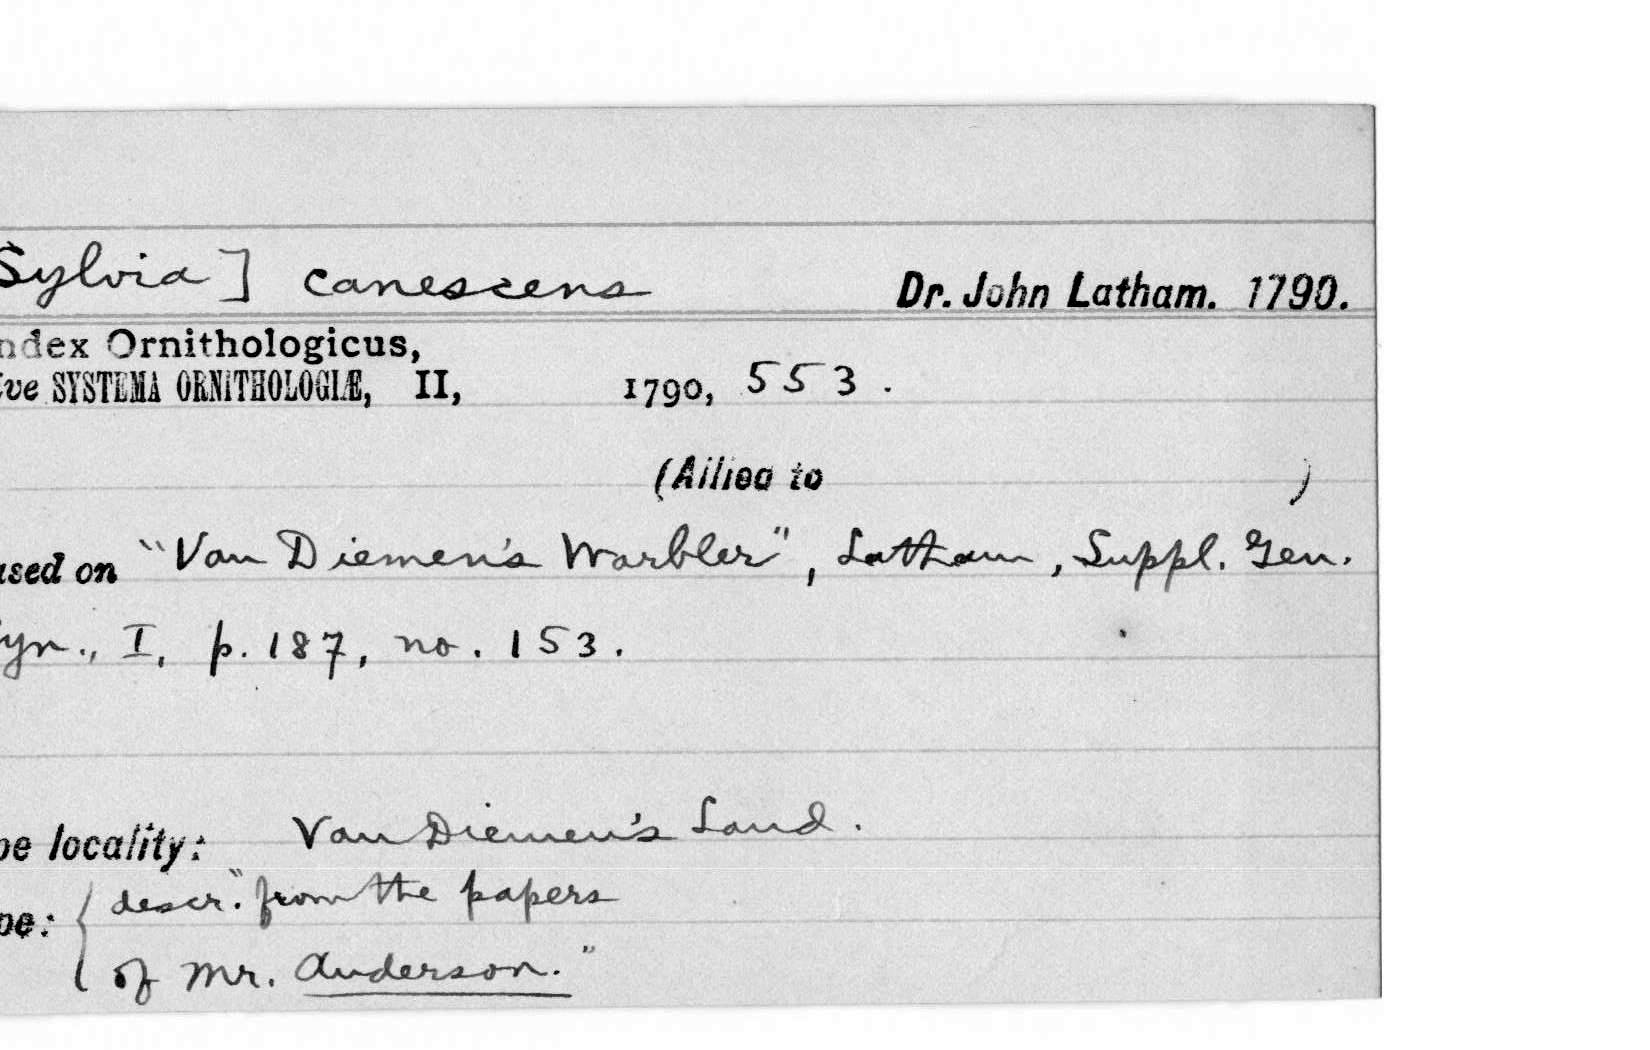 Sylvia] canescens Dr. John Latham. 1790.
ndex Ornithologicus,
ive SYSTEMA ORNITHOLOGIÆ, II, 1790, 553.
(Allied to )
ased on "Van Diemen's Warbler", Latham, Suppl. Gen.
Syn., I, p. 187, no. 153.
pe locality: Van Diemen's Land.
pe: { descr. "from the papers
of Mr. Anderson."